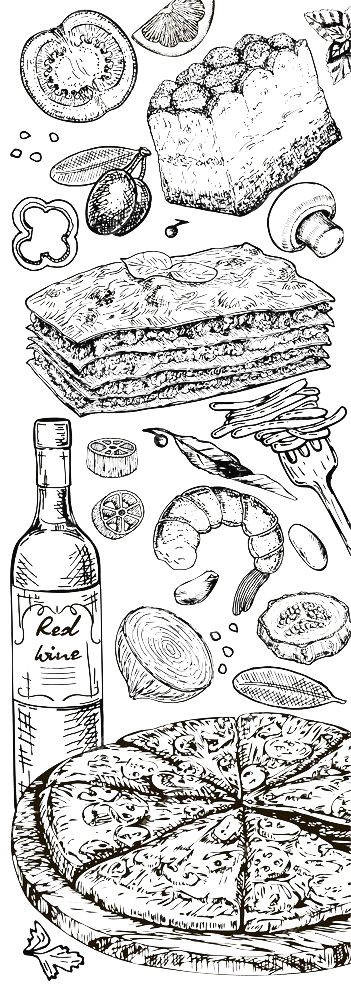 Red
wine